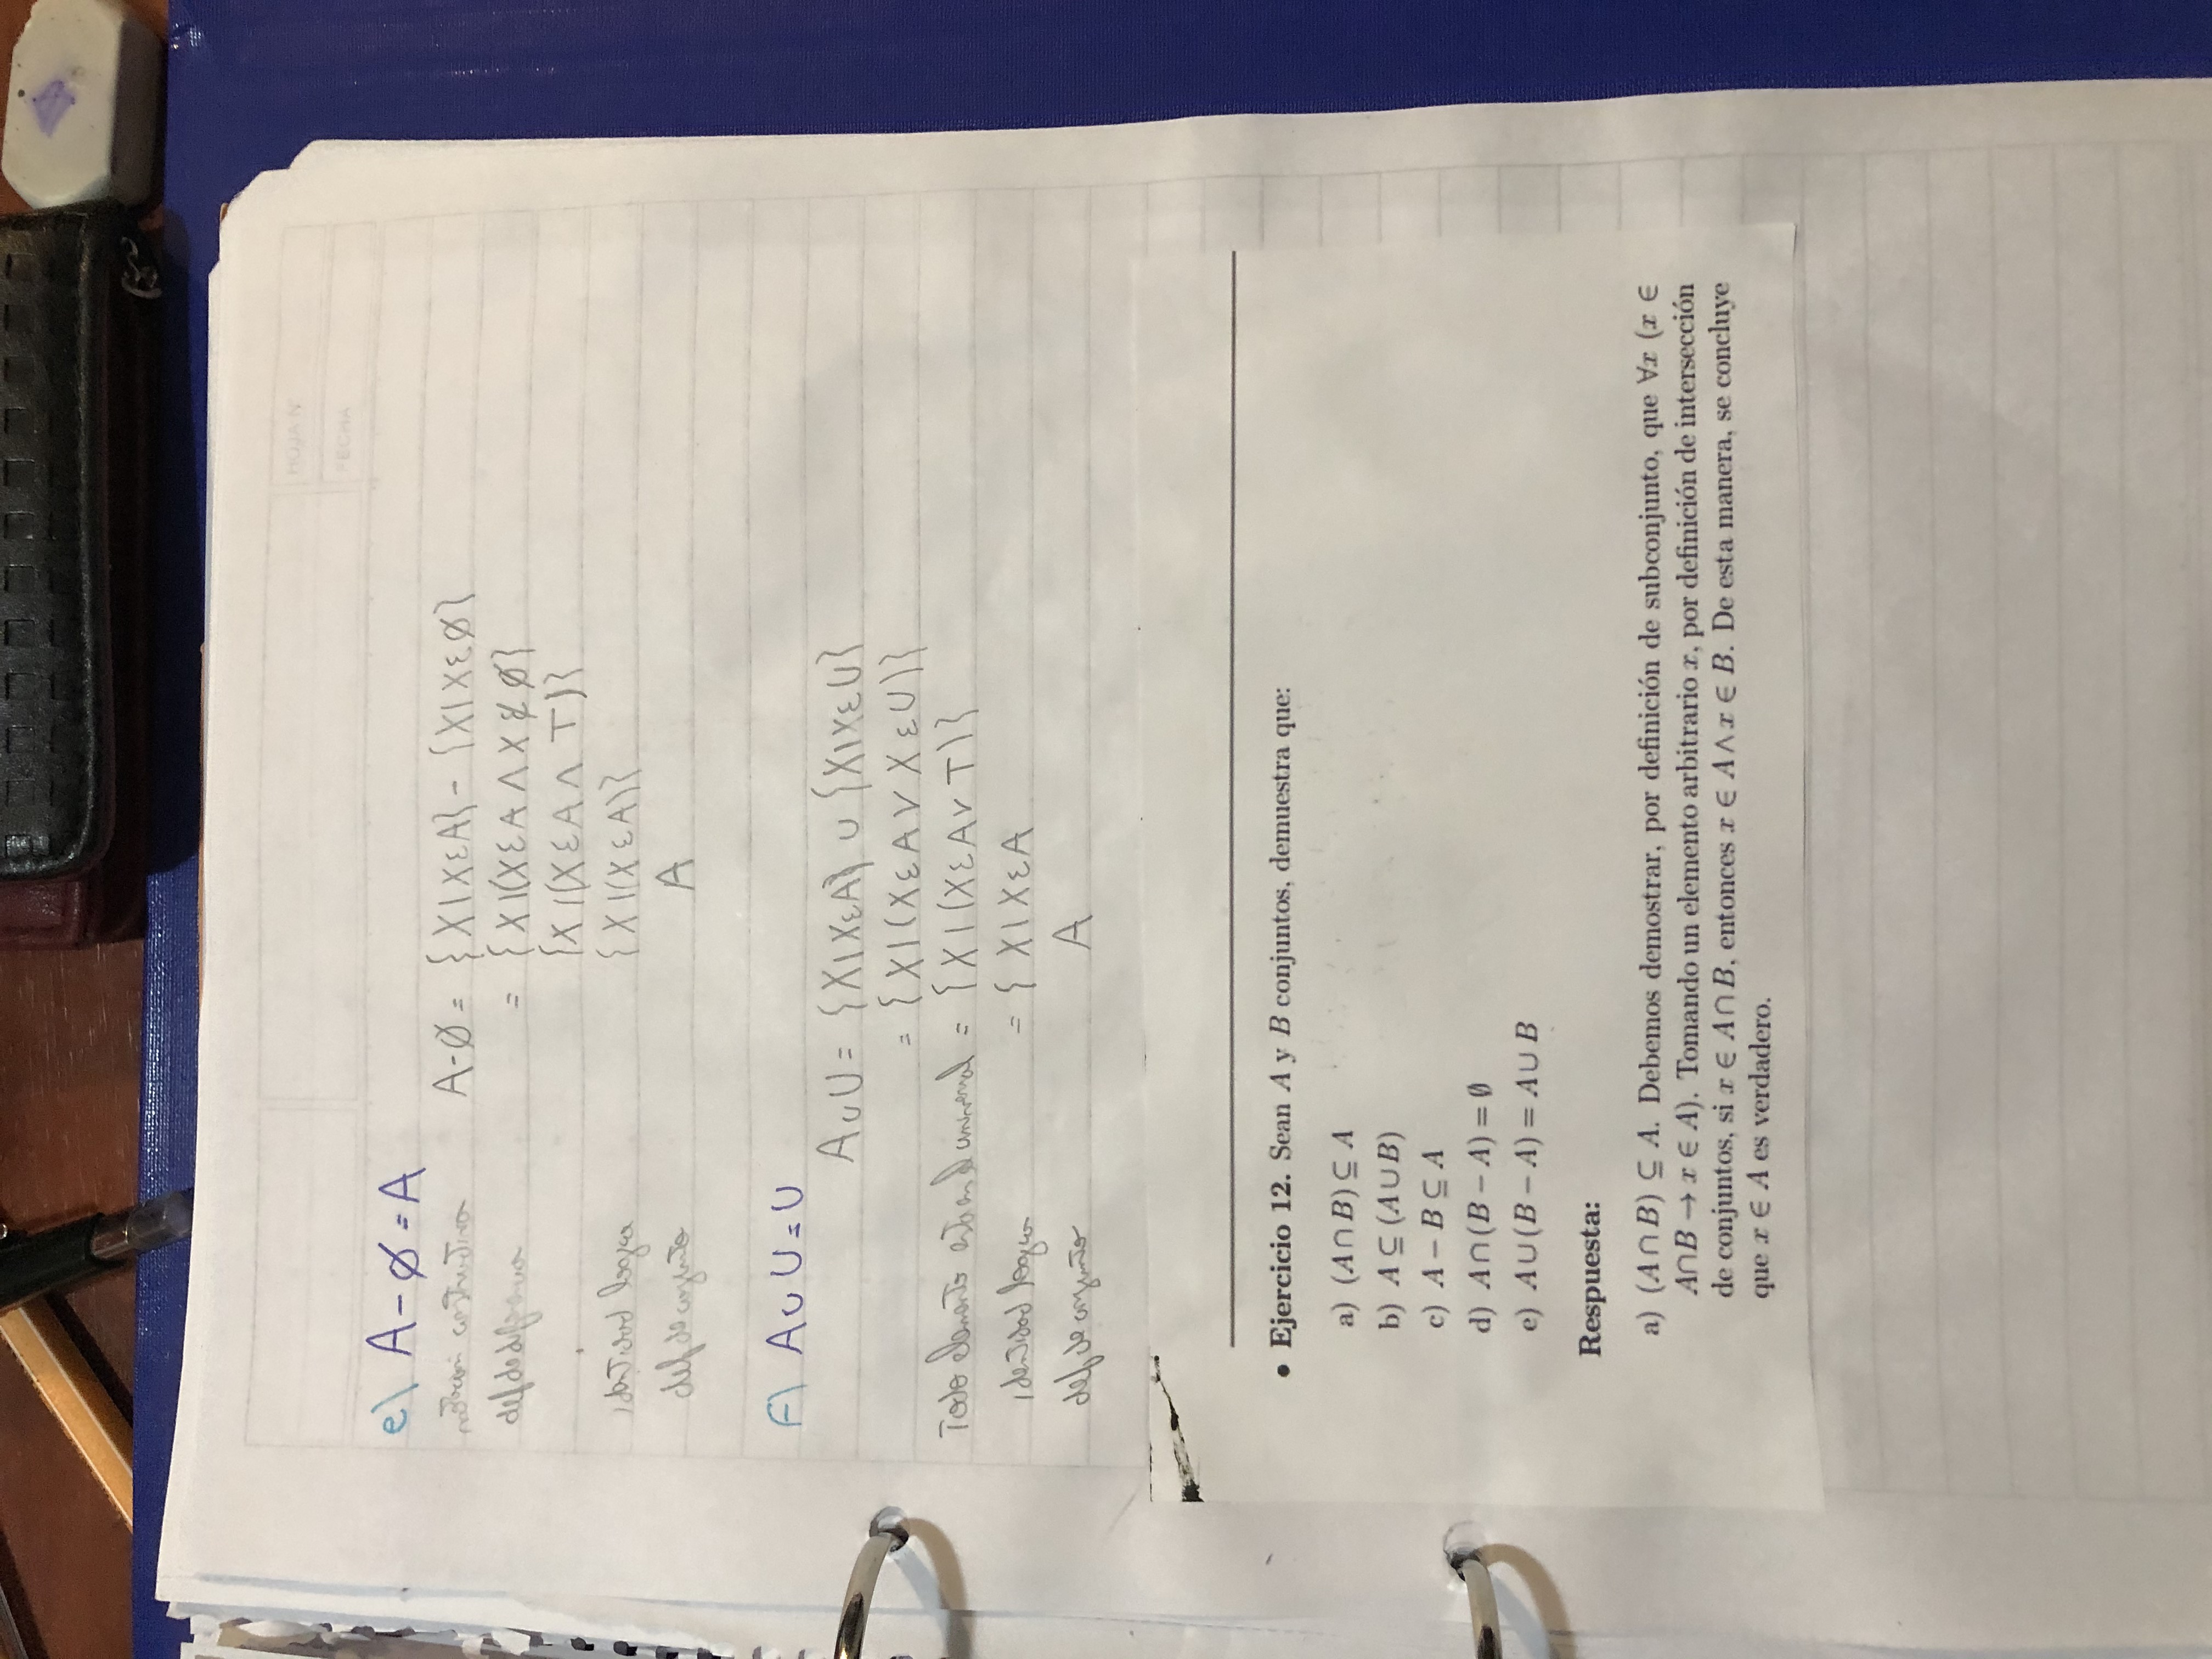 HOJA N°
FECHA
e) A-∅=A
notación constructiva A-∅= {X|XεA}-{X|Xε∅}
def de diferencia = {X|(XεA∧X∉∅}
{X|(XεA∧T)}
identidad logica {X|(XεA)}
def de conjunto A
F) A∪U=U
A∪U= {X|XεA} ∪ {X|XεU}
= {X|(XεA∨XεU)}
Todo elemento esta en el universal = {X|(XεA∨T)}
identidad logica = {X|XεA
def de conjunto A
• Ejercicio 12. Sean A y B conjuntos, demuestra que:
a) (A∩B)⊆A
b) A⊆(A∪B)
c) A−B⊆A
d) A∩(B−A)=∅
e) A∪(B−A)=A∪B
Respuesta:
a) (A∩B) ⊆ A. Debemos demostrar, por definición de subconjunto, que ∀x (x ∈
A∩B → x ∈ A). Tomando un elemento arbitrario x, por definición de intersección
de conjuntos, si x ∈ A∩B, entonces x ∈ A∧x ∈ B. De esta manera, se concluye
que x ∈ A es verdadero.